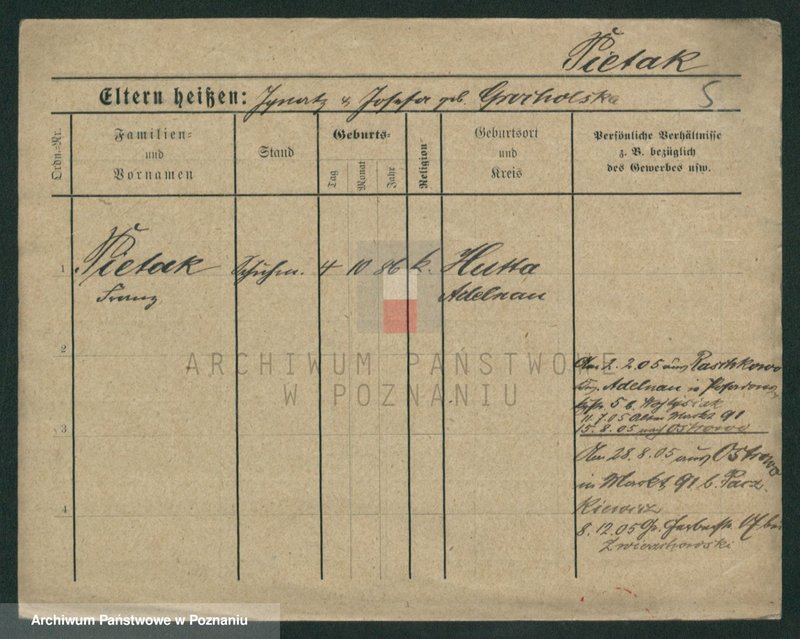 Pietak
Eltern heißen: Ignatz & Josefa geb. Grocholska
5
Ordn.=Nr.
Familien=
und
Vornamen
Stand
Geburts=
Tag
Monat
Jahr
Religion
Geburtsort
und
Kreis
Persönliche Verhältnisse
z. B. bezüglich
des Gewerbes usw.
1
Pietak Schuhm. 4 10 86 k. Hutta
Franz Adelnau
2
3
4
Am 2.2.05 aus Raschkowo
Adelnau in
5 b.
4.7.05 Alter Markt 91
15.8.05 nach Ostrowo
Am 28.8.05 aus Ostrowo
in Markt 91 b.
8.12.05 Gr. bei
ARCHIWUM PAŃSTWOWE
W POZNANIU
Archiwum Państwowe w Poznaniu